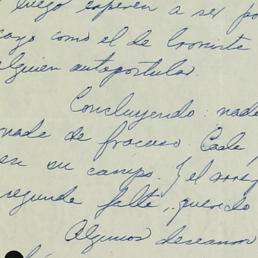 luego esperen a ser po
cayo como el de
alguien autopostula.
Concluyendo: nade
nade de fracaso. Cade
en su campo. Y el
segunde falte, querido
Algunos desearon